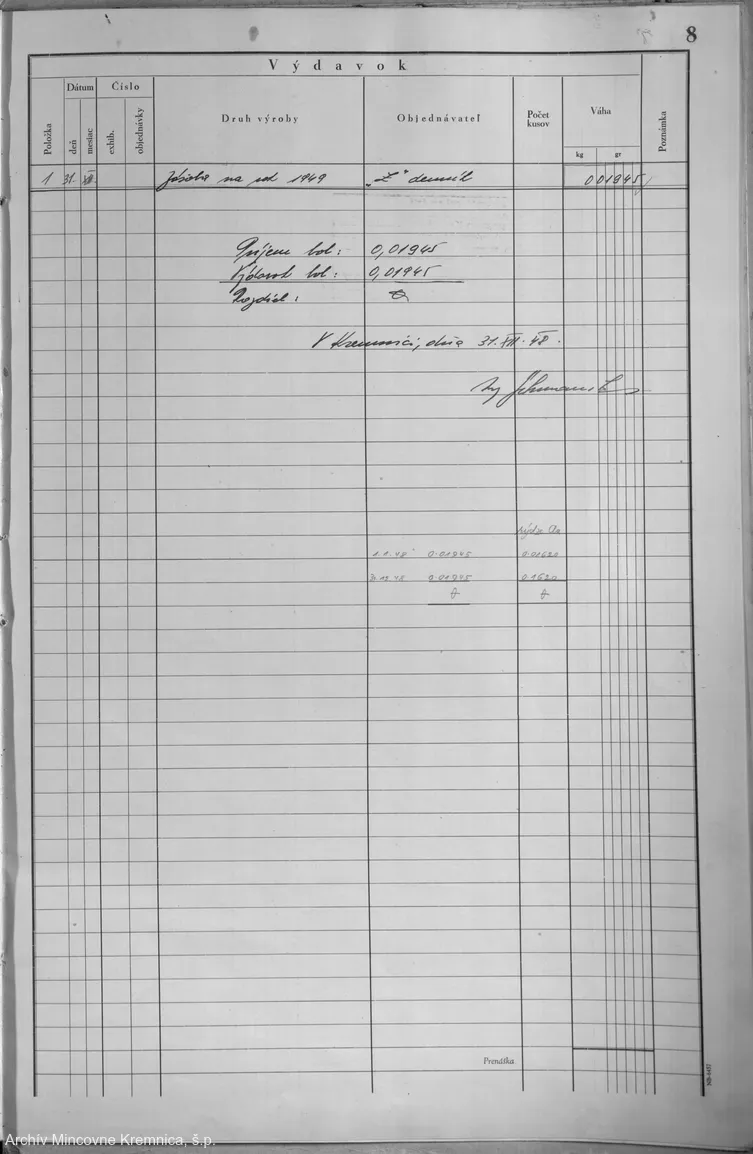 8
Výdavok
Položka
Dátum
deň
mesiac
Číslo
exhib.
objednávky
Druh výroby
Objednávateľ
Počet kusov
Váha
kg gr
Poznámka
1 31. XII. Zásoba na rok 1949 „Ž" denník 001945
Príjem bol: 0,01945
Výdavok bol: 0,01945
Rozdiel:
V Kremnici, dňa 31. XII. 48.
1.1.48 0.01945 0.01620
31.12.48 0.01945 0.1620
Prenáška
Archív Mincovne Kremnica, š.p.